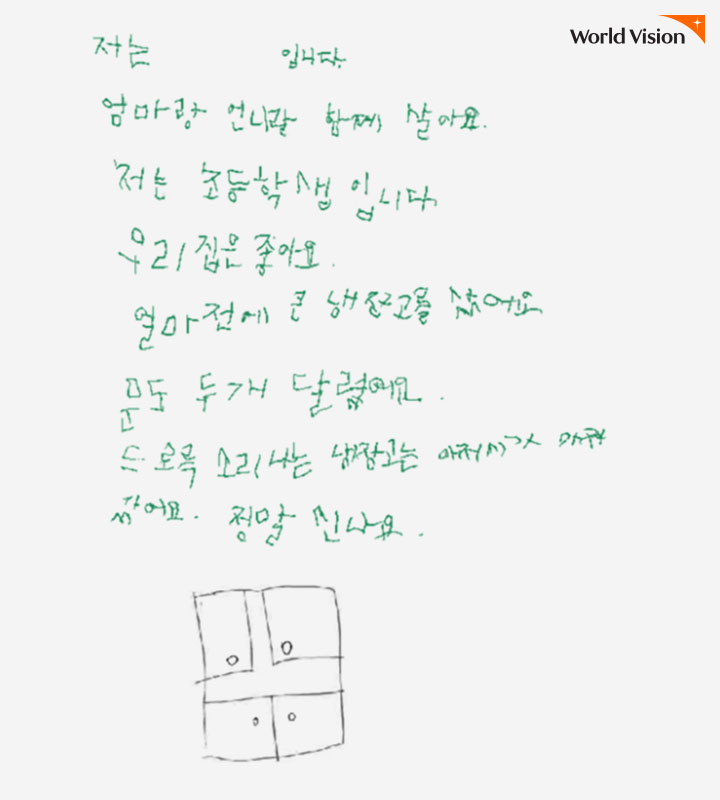 World Vision
저는 입니다.
엄마랑 언니랑 함께 살아요.
저는 초등학생 입니다
우리 집은 좋아요.
얼마전에 큰 냉장고를 샀어요
문도 두개 달렸어요.
드르륵 소리나는 냉장고는 아저씨가
갔어요. 정말 신나요.